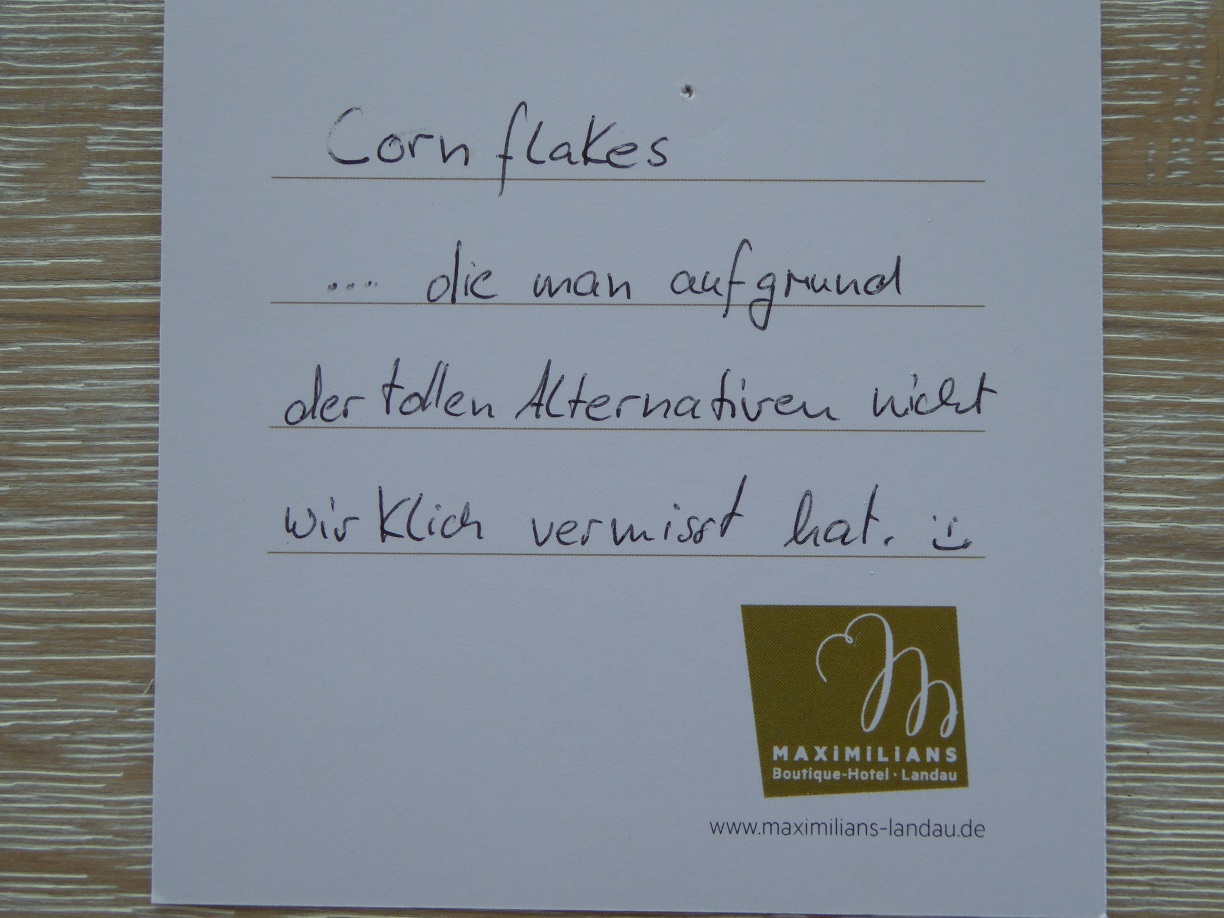 Cornflakes
.... die man aufgrund
der tollen Alternativen nicht
wirklich vermisst hat. :)
MAXiMiLiANS
Boutique-Hotel · Landau
www.maximilians-landau.de